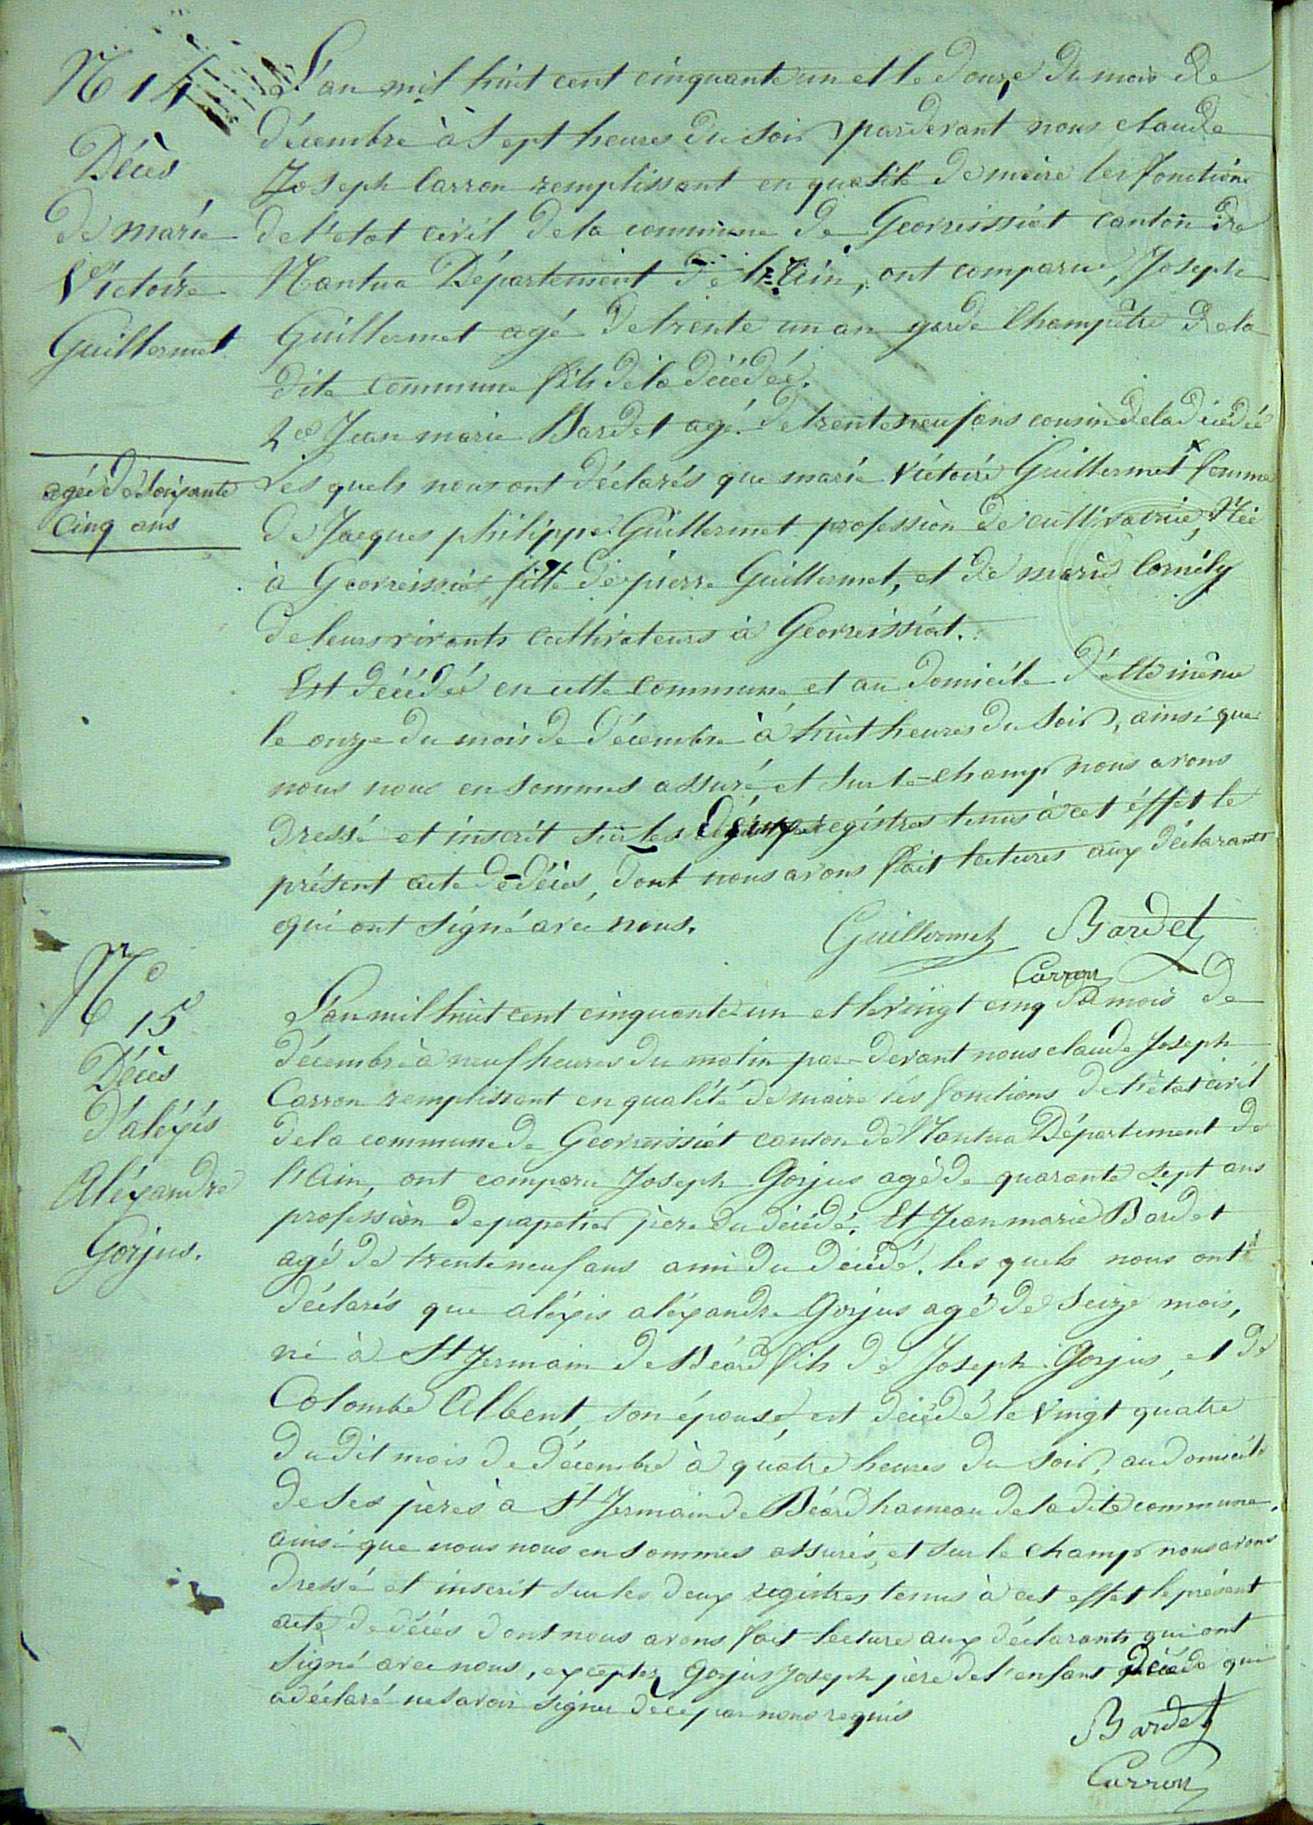 N 14
Décès
de marie
Victoire
Guillermet
agée de Soixante
Cinq ans
L'an mil huit cent cinquante un et le douze du mois de
décembre à Sept heures du Soir pardevant nous claude
Joseph Carron remplissant en qualité de maire les fonctions
de l'etat civil de la commune de Geovreissiat canton de
Nantua Département de l'Ain, ont comparu, Joseph
Guillermet agé de trente un an garde Champêtre de la
dite commune fils de la décédée.
2e Jean marie Bardet agé de trente neuf ans cousin de la décédée
Les quels nous ont déclarés que marie Victoire Guillermet x femme
de Jacques philippe Guillermet profession de cultivatrice, Née
à Geovreissiat, fille de pierre Guillermet, et de marie Cornély
de leurs vivants cultivateurs à Geovreissiat.
Est décédée en cette commune, et au domicile d'elle même
le onze du mois de décembre à huit heures du Soir, ainsi que
nous nous en sommes assuré, et sur le champ nous avons
dressé et inscrit sur les deux registres tenus à cet éffet le
présent acte de décès, dont nous avons fait lectures aux déclarants
qui ont signé avec nous.
Guillermet Bardet
Carron
N° 15
Décès
d'aléxis
Aléxandre
Gorjus.
L'an mil huit cent cinquante un et le vingt cinq du mois de
décembre à neuf heures du matin par-devant nous claude Joseph
Carron remplissant en qualité de maire les fonctions de l'état civil
de la commune de Geovreissiat canton de Nantua Département de
l'Ain, ont comparu Joseph Gorjus agé de quarante sept ans
profession de papetier père du décédé. Et Jean marie Bardet
agé de trente neuf ans ami du décédé. les quels nous ont
déclarés que aléxis aléxandre Gorjus agé de Seize mois,
né à St Germain de Béard fils de Joseph Gorjus, et de
Colombe Albent, son épouse, est décédé le vingt quatre
du dit mois de décembre à quatre heures du Soir, au domicile
de ses pères à St Germain de Béard hameau de la dite commune,
ainsi que nous nous en sommes assurés, et sur le champ nous avons
dressé et inscrit sur les deux registres tenus à cet effet le présent
acte de décés dont nous avons fait lecture aux déclarants qui ont
signé avec nous, exceptez Gorjus Joseph père de l'enfant décédé qui
a déclaré ne savoir signer de ce par nous requis
Bardet
Carron